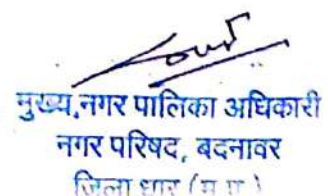 मुख्य नगर पालिका अधिकारी
नगर परिषद, बदनावर
जिला धार (म.प्र.)